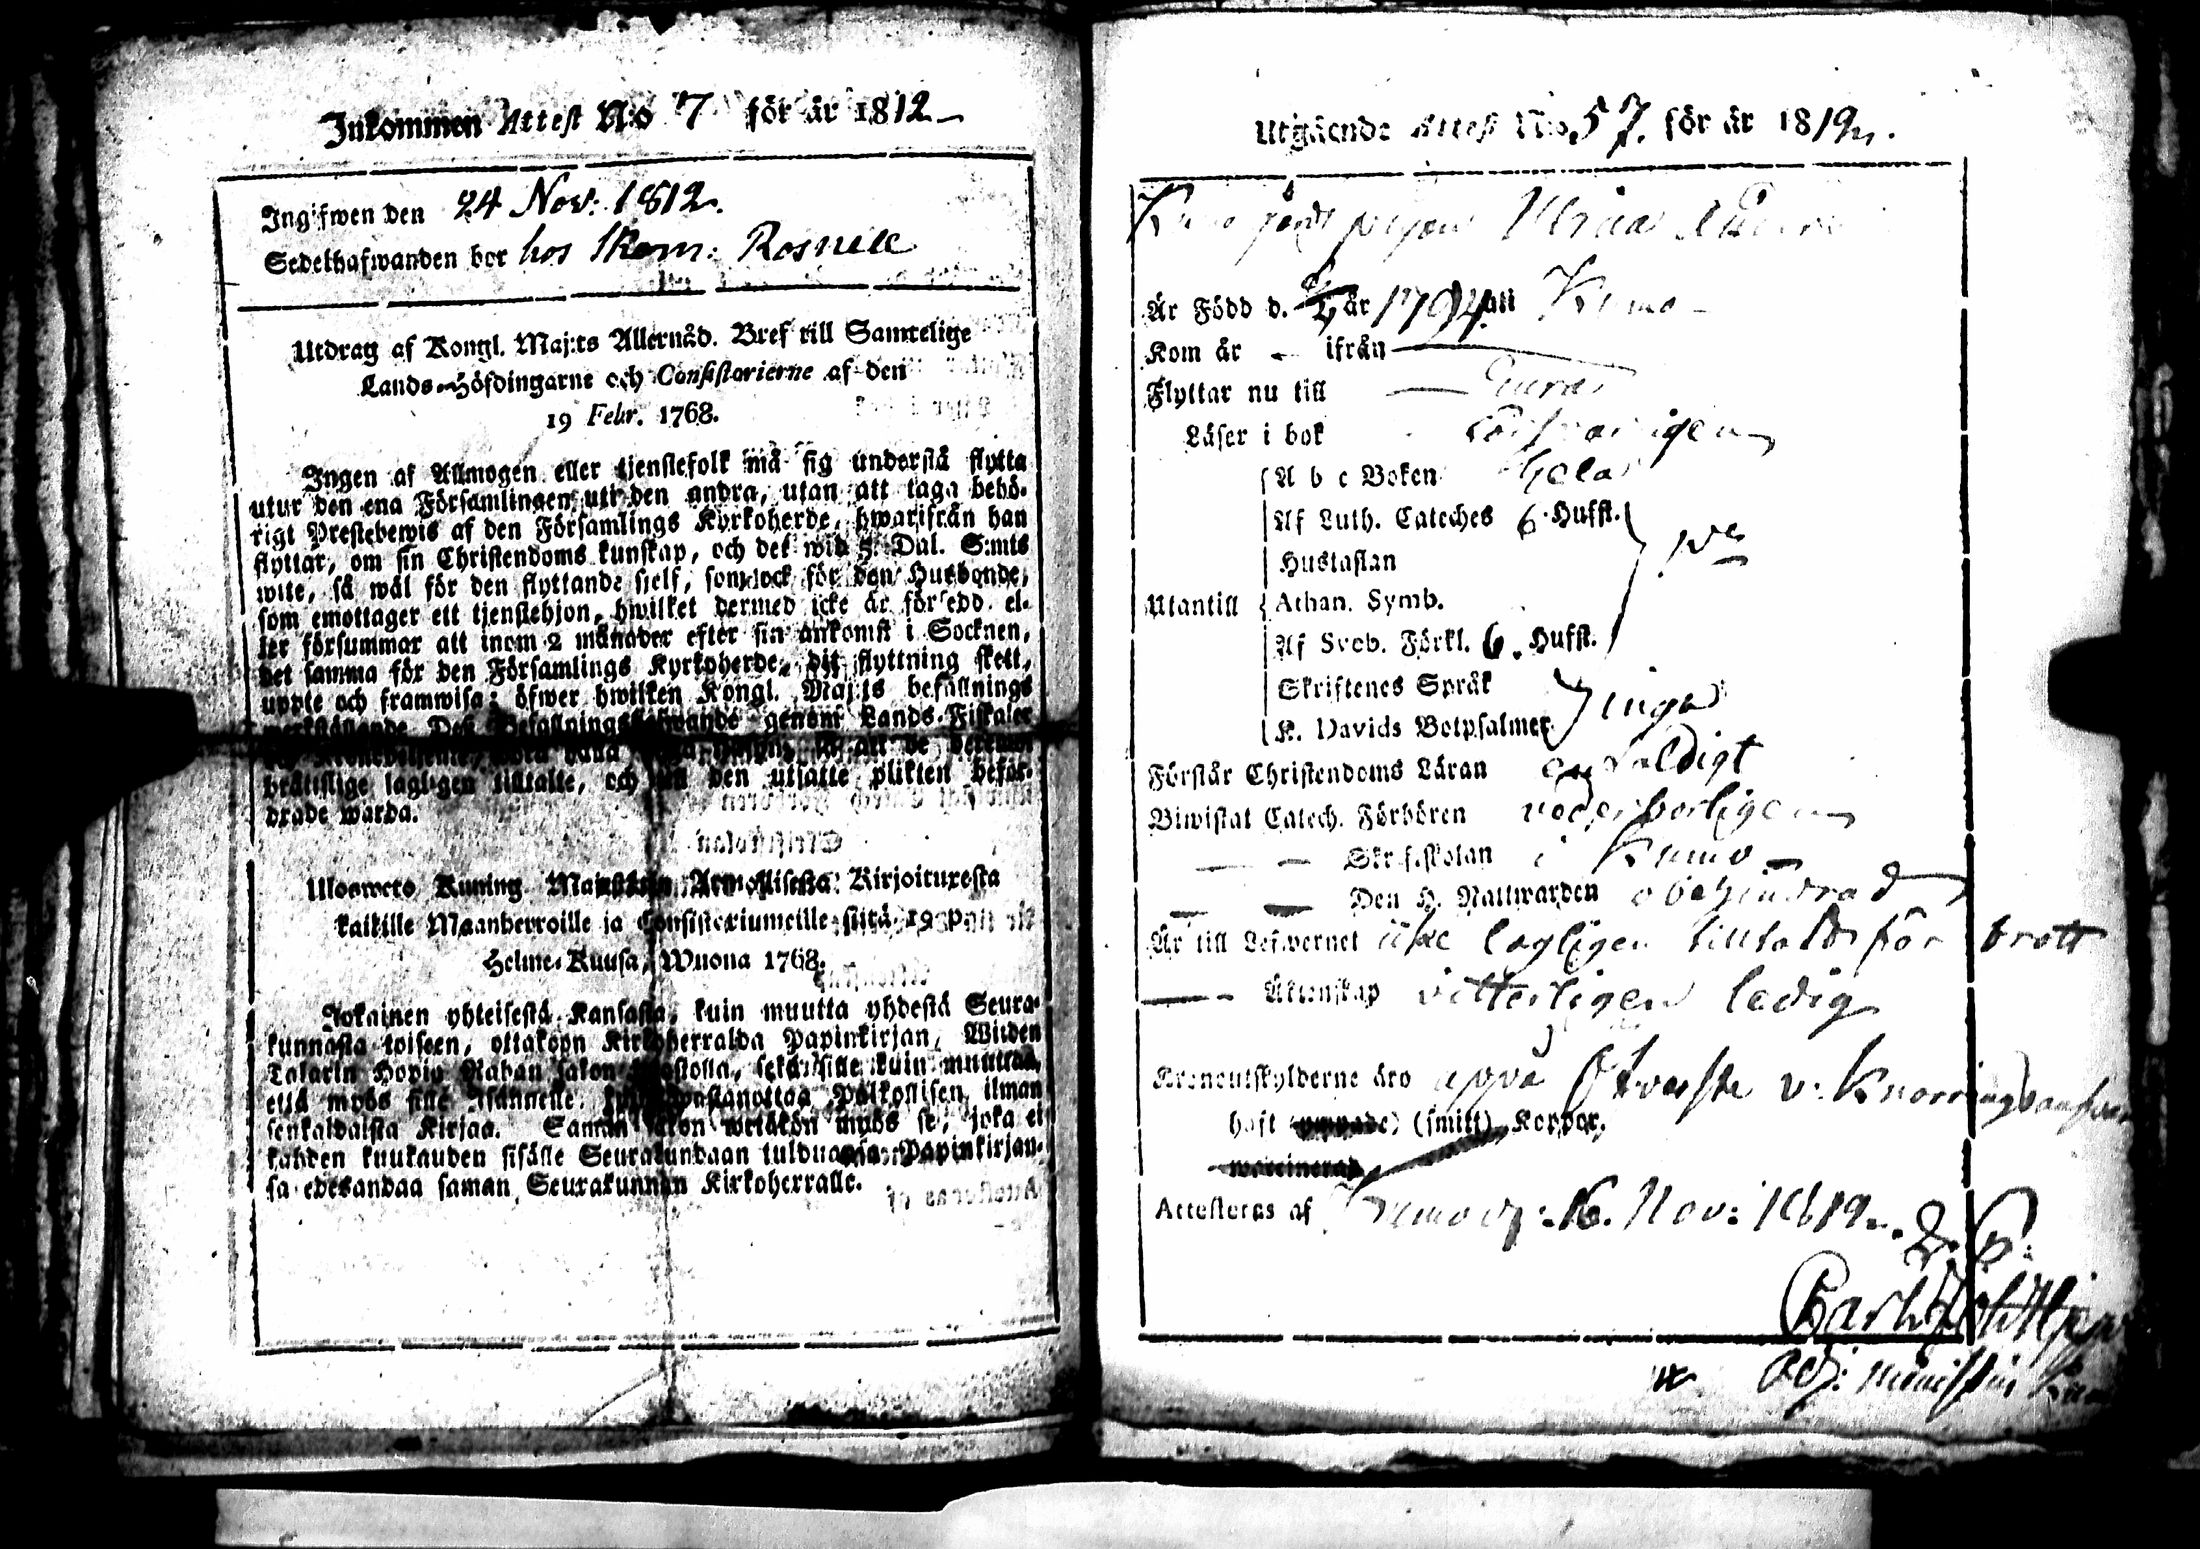 Inkommen Attest N:o 7 för år 1812
Ingifwen den 24 Nov: 1812.
Sedelhafwanden bor hos Skom: Rosnell
Utdrag af Kongl. Maj:ts Allernåd. Bref till Samtelige
Lands-Höfdingarne och Consistorierne af den
19 Febr. 1768.
Ingen af Allmogen eller tjenstefolk må sig understå flytta
utur den ena Församlingen uti den andra, utan att taga behö-
rigt Prestebewis af den Församlings Kyrkoherde, hwarifrån han
flyttar, om sin Christendoms kunskap, och det wid 5. Dal. S:mts
wite, så wäl för den flyttande sjelf, som ock för den Husbonde,
som emottager ett tjenstehjon, hwilket dermed icke är försedd, el-
ler försummar att inom 2 månader efter sin ankomst i Socknen,
det samma för den Församlings Kyrkoherde, dit flyttning skett,
uppte och framwisa; öfwer hwilken Kongl. Maj:ts befallnings
werkställande Deß Befallningshafwande genom Lands-Fiskaler
bråttslige lagligen tilltalte, och den utsatte plikten befor-
drade warda.
Ulosweto Kuning. Majestetin Armollisesta Kirjoituxesta
kaikille Maanherroille ja Consistoriumeille siitä 19 p.
Helme-Kuusa, Wuona 1768.
Jokainen yhteisestä Kansasta, kuin muutta yhdestä Seura-
kunnasta toiseen, ottakoon Kirkoherralda Papinkirjan, Wiiden
Talarin Hopia Rahan sakon uhostolla, sekä sille kuin muuttaa,
että myös sille Isännelle, Palkollisen ilman
senkaldaista Kirjaa. Saman sakon wetäkön myös se, joka ei
kahden kuukauden sisälle Seurakundaan tulduansa Papinkirjan-
sa edesandaa saman Seurakunnan Kirkoherralle.
Utgående Attest N:o 57. för år 1812.
Ulrica
Är Född d. år 1794 uti Kumo
Kom år — ifrån —
Flyttar nu till — Eura
Läser i bok försvarligen
A b c Boken hela
Af Luth. Cateches 6 Hufst.
Hustaflan
Utantill Athan. Symb.
Af Sveb. Förkl. 6. Hufst.
Skriftenes Språk
K. Davids Botpsalmer inga
Förstår Christendoms Läran enfaldigt
Biwistat Catech. Förhören vederborligen
— — Skriftskolan i Kumo
— — Den H. Nattwarden obehindrad
Är till Lefwernet icke lagligen tilltald för brott
— — Äktenskap vitterligen ledig
Kronoutskylderne äro Öfverste v: Knorring
haft (ympade) (smitt) Koppor.
waccinerad
Attesteras af Kumo d: 16. Nov: 1812.
Carl
Adj: minist: in